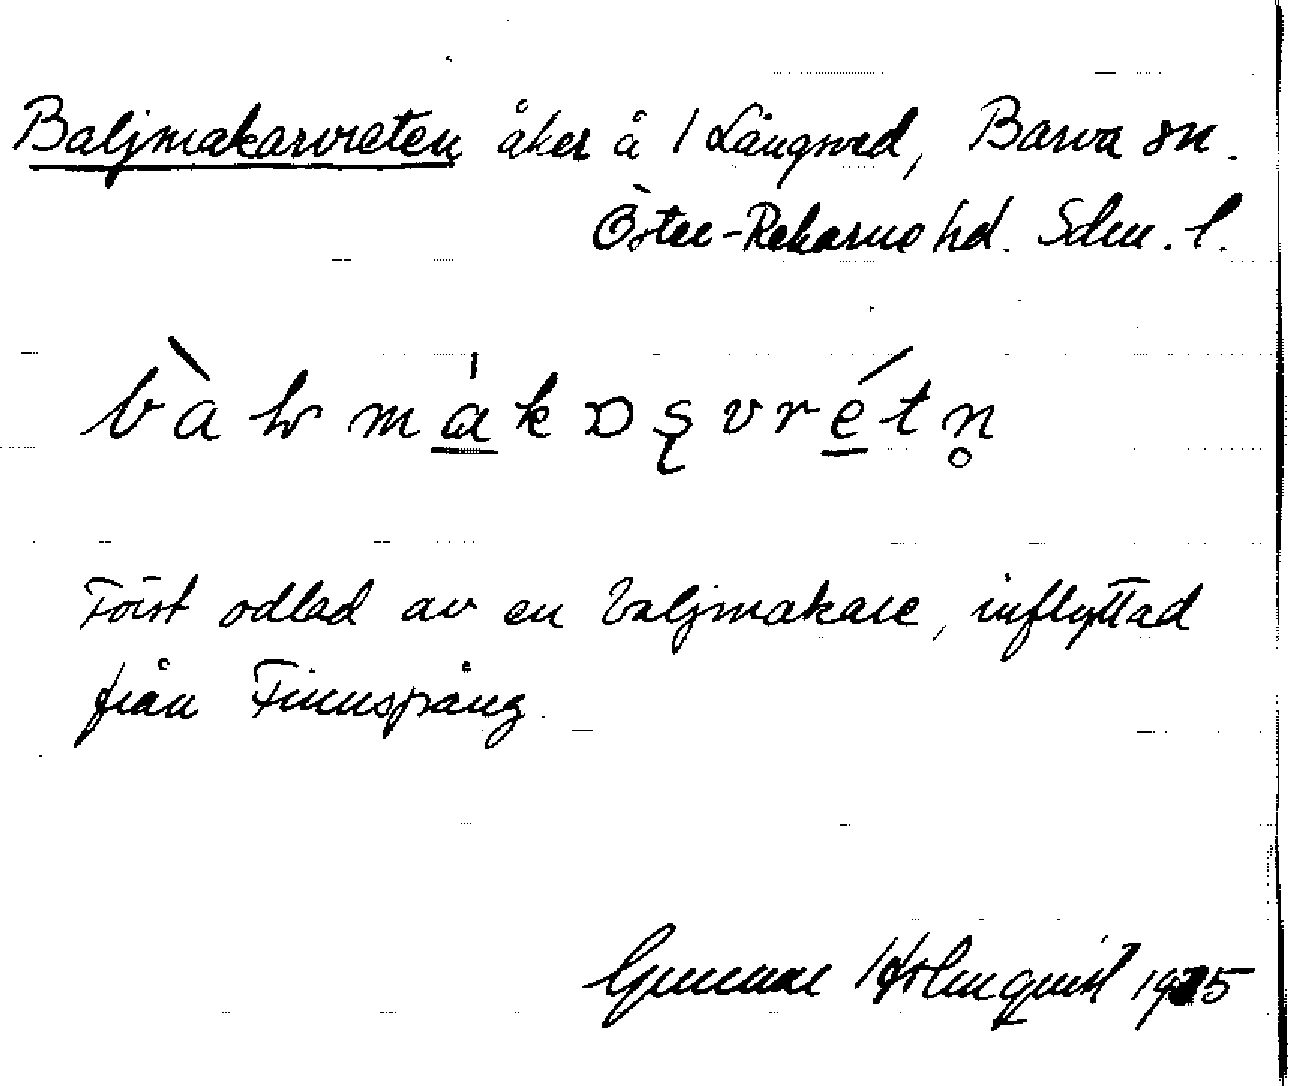 Baljmakarvreten åker å 1 Långved, Barva sn.
Öster-Rekarne hd. Södm. l.
Först odlad av en baljmakare, inflyttad
från Finnspång.
Gunnar Holmquist